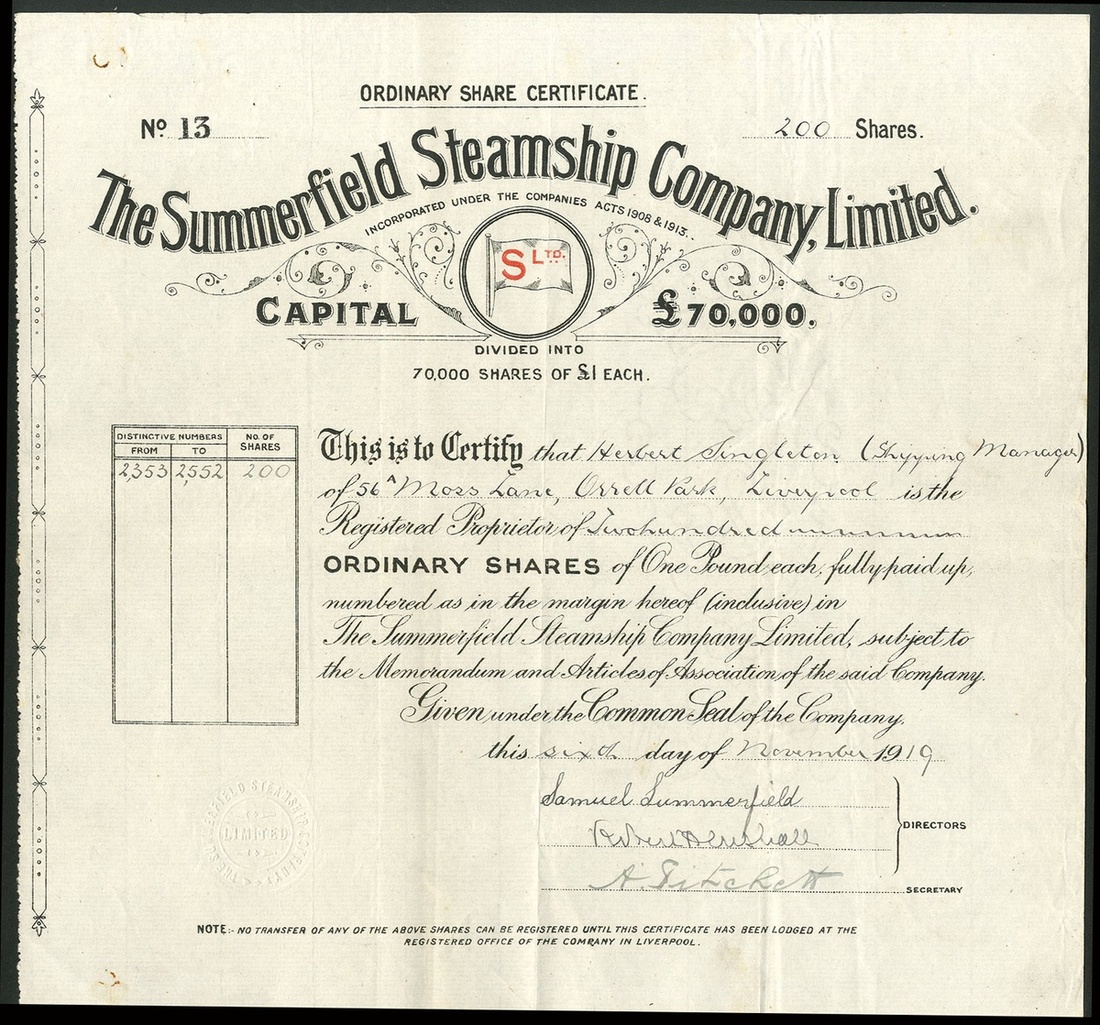 ORDINARY SHARE CERTIFICATE.
No 13
200 Shares.
The Summerfield Steamship Company, Limited.
INCORPORATED UNDER THE COMPANIES ACTS 1908 & 1913.
S LTD.
CAPITAL £70,000.
DIVIDED INTO
70,000 SHARES OF £1 EACH.
DISTINCTIVE NUMBERS
NO. OF SHARES
FROM TO
2,353 2,552 200
This is to Certify that Herbert Singleton (Shipping Manager)
of 56A Moss Lane, Orrell Park, Liverpool is the
Registered Proprietor of Two hundred
ORDINARY SHARES of One Pound each, fully paid up,
numbered as in the margin hereof (inclusive) in
The Summerfield Steamship Company Limited, subject to
the Memorandum and Articles of Association of the said Company.
Given under the Common Seal of the Company,
this sixth day of November 1919
Samuel Summerfield
DIRECTORS
SECRETARY
THE SUMMERFIELD STEAMSHIP COMPANY
LIMITED
NOTE:- NO TRANSFER OF ANY OF THE ABOVE SHARES CAN BE REGISTERED UNTIL THIS CERTIFICATE HAS BEEN LODGED AT THE
REGISTERED OFFICE OF THE COMPANY IN LIVERPOOL.